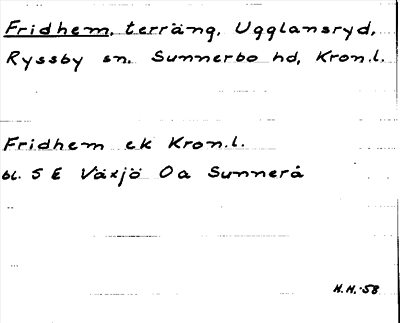 Fridhem, terräng, Ugglansryd,
Ryssby sn. Sunnerbo hd, Kron.l.
Fridhem ek Kron.l.
bl. 5 E Växjö Oa Sunnerå
H.H.-58